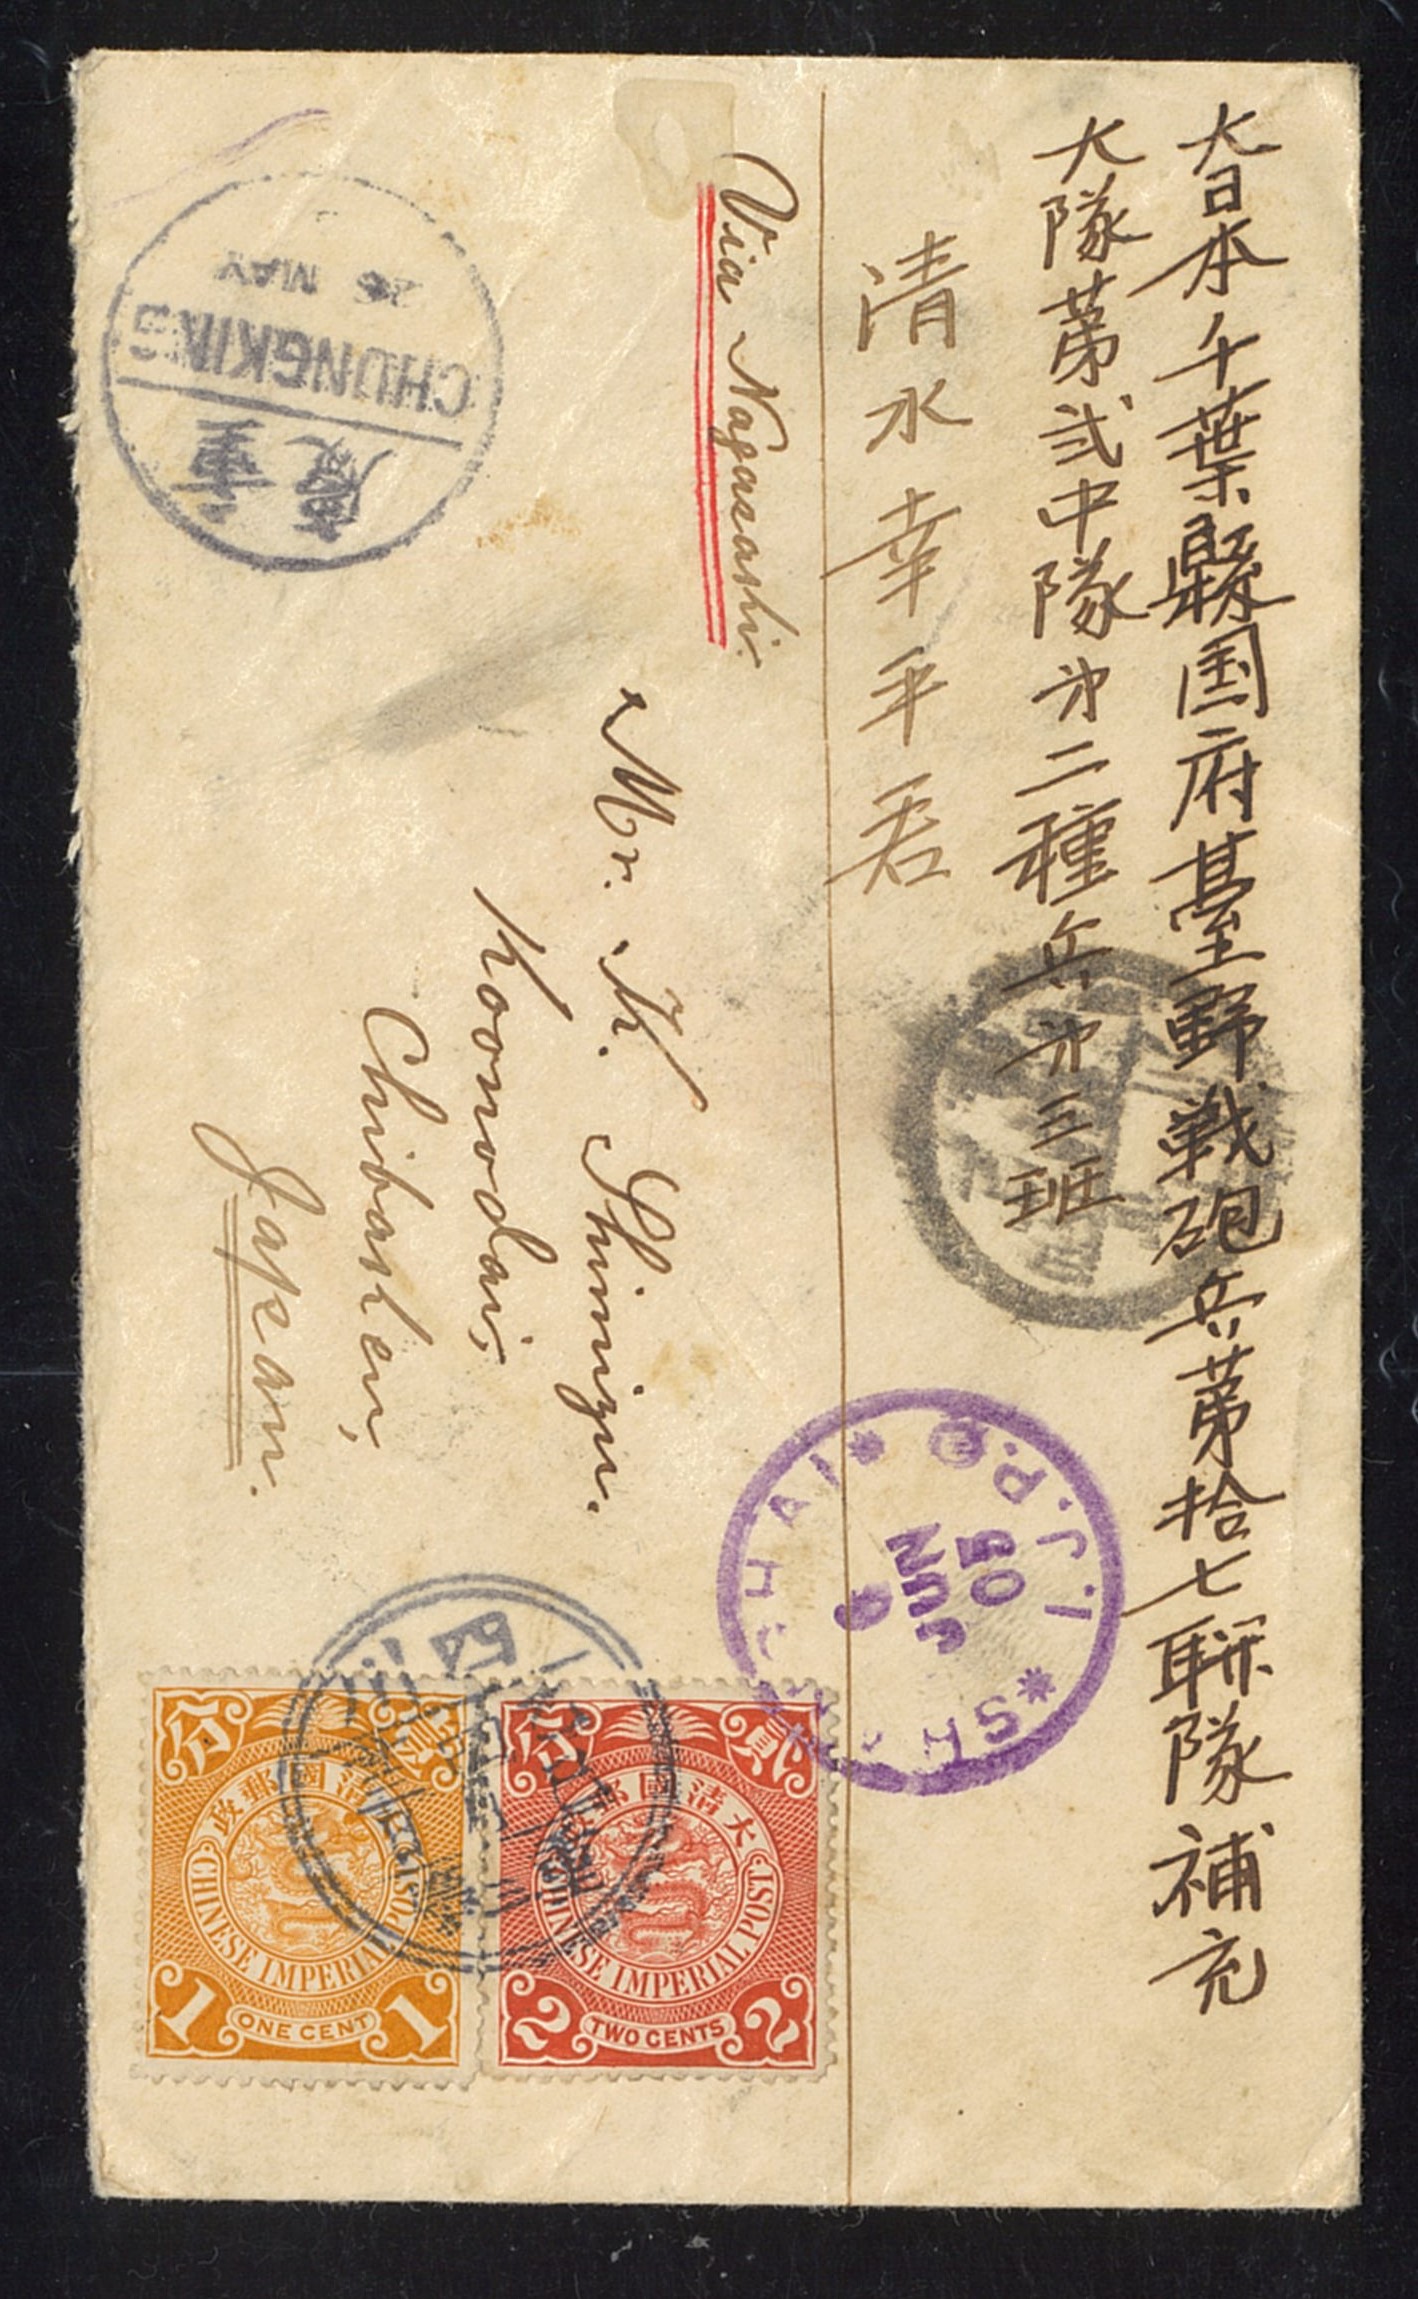 大日本千葉縣国府臺野戦砲兵第拾七聯隊補充
大隊第弐中隊才二種兵才三班
清水幸平君
Via Nagasaki.
Mr. K. Shimizu.
Koonodai,
Chibaken,
Japan.
CHUNGKING
26 MAY
重慶
I.J.P.O.
SHANGHAI
6
JUN
05
貳分
大清國郵政
CHINESE IMPERIAL POST
2 2
TWO CENTS
壹分
大清國郵政
CHINESE IMPERIAL POST
1 1
ONE CENT
四川